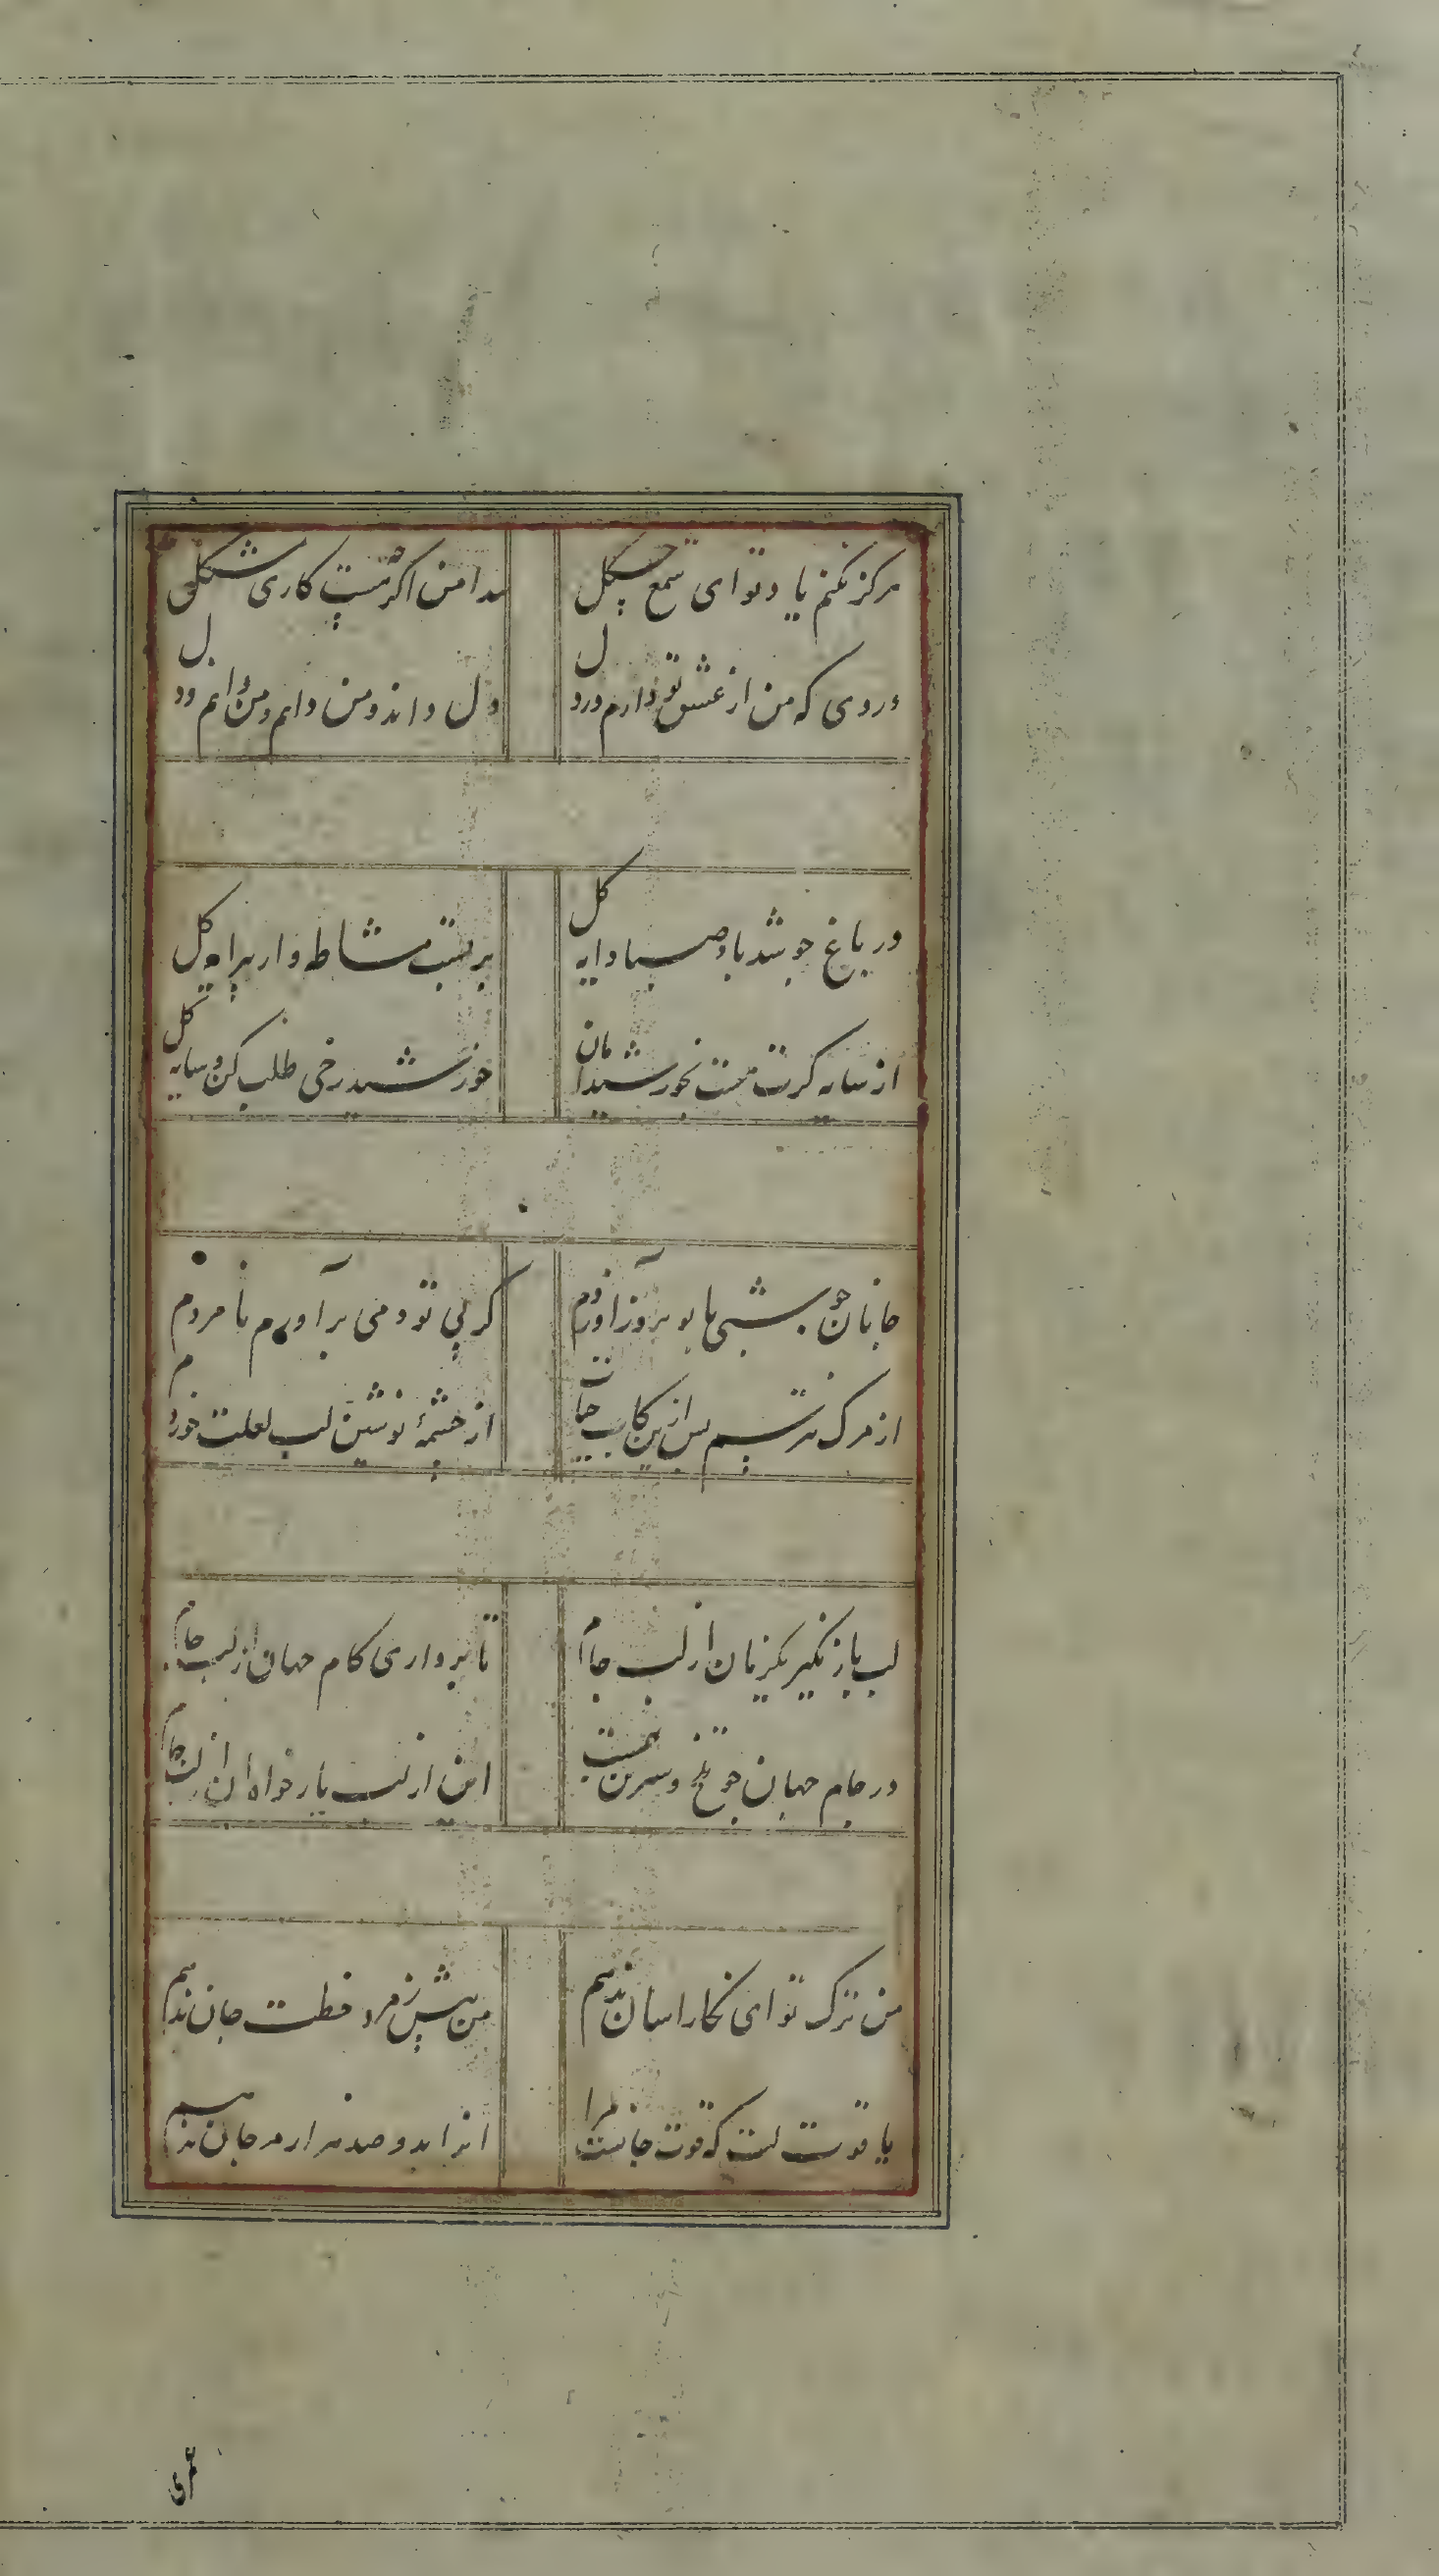 هرگز نکنم یاد تو ای شمع چگل
سدا من اگر هست کاری مشکل
دردی که من از عشق تو دارم در دل
دل داند و من دانم و من دانم و دل
در باغ چو شد باد صبا دایه گل
بر بست مشاطه وار پیرایه گل
از سایه گرت هست بخورشید امان
خورشید رخی طلب کن و سایه گل
جانان چو شبی با تو بروز آوردم
گر بی تو دمی برآورم نامردم
از مرگ نترسم پس ازین کاب حیات
از چشمهٔ نوشین لب لعلت خوردم
لب باز نگیر یکزمان از لب جام
تا برداری کام جهان از لب جام
در جام جهان چو تلخ و شیرین بهمست
این از لب یار خواه و آن از لب جام
من ترک تو ای نگار آسان ندهم
من پیش زمرد خطت جان ندهم
یاقوت لبت که قوت جانست مرا
آنرا بدو صد هزار مرجان ندهم